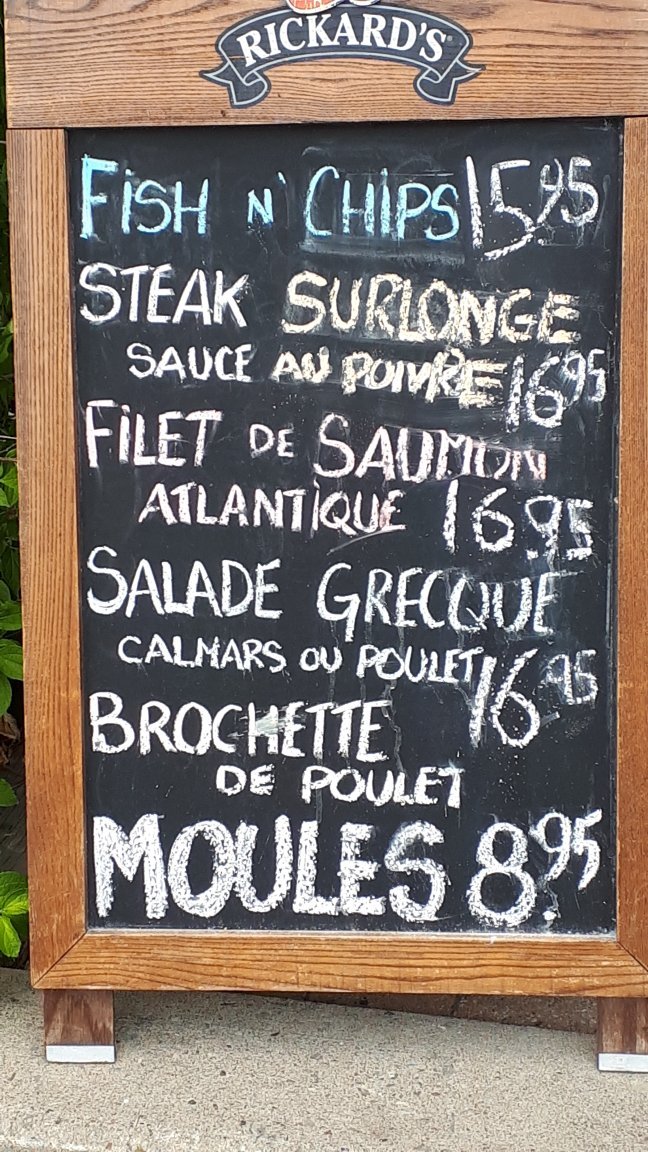 RICKARD'S
FISH N' CHIPS 15.95
STEAK SURLONGE
SAUCE AU POIVRE 16 95
FILET DE SAUMON
ATLANTIQUE 16 95
SALADE GRECQUE
CALMARS OU POULET 16 95
BROCHETTE
DE POULET
MOULES 8.95